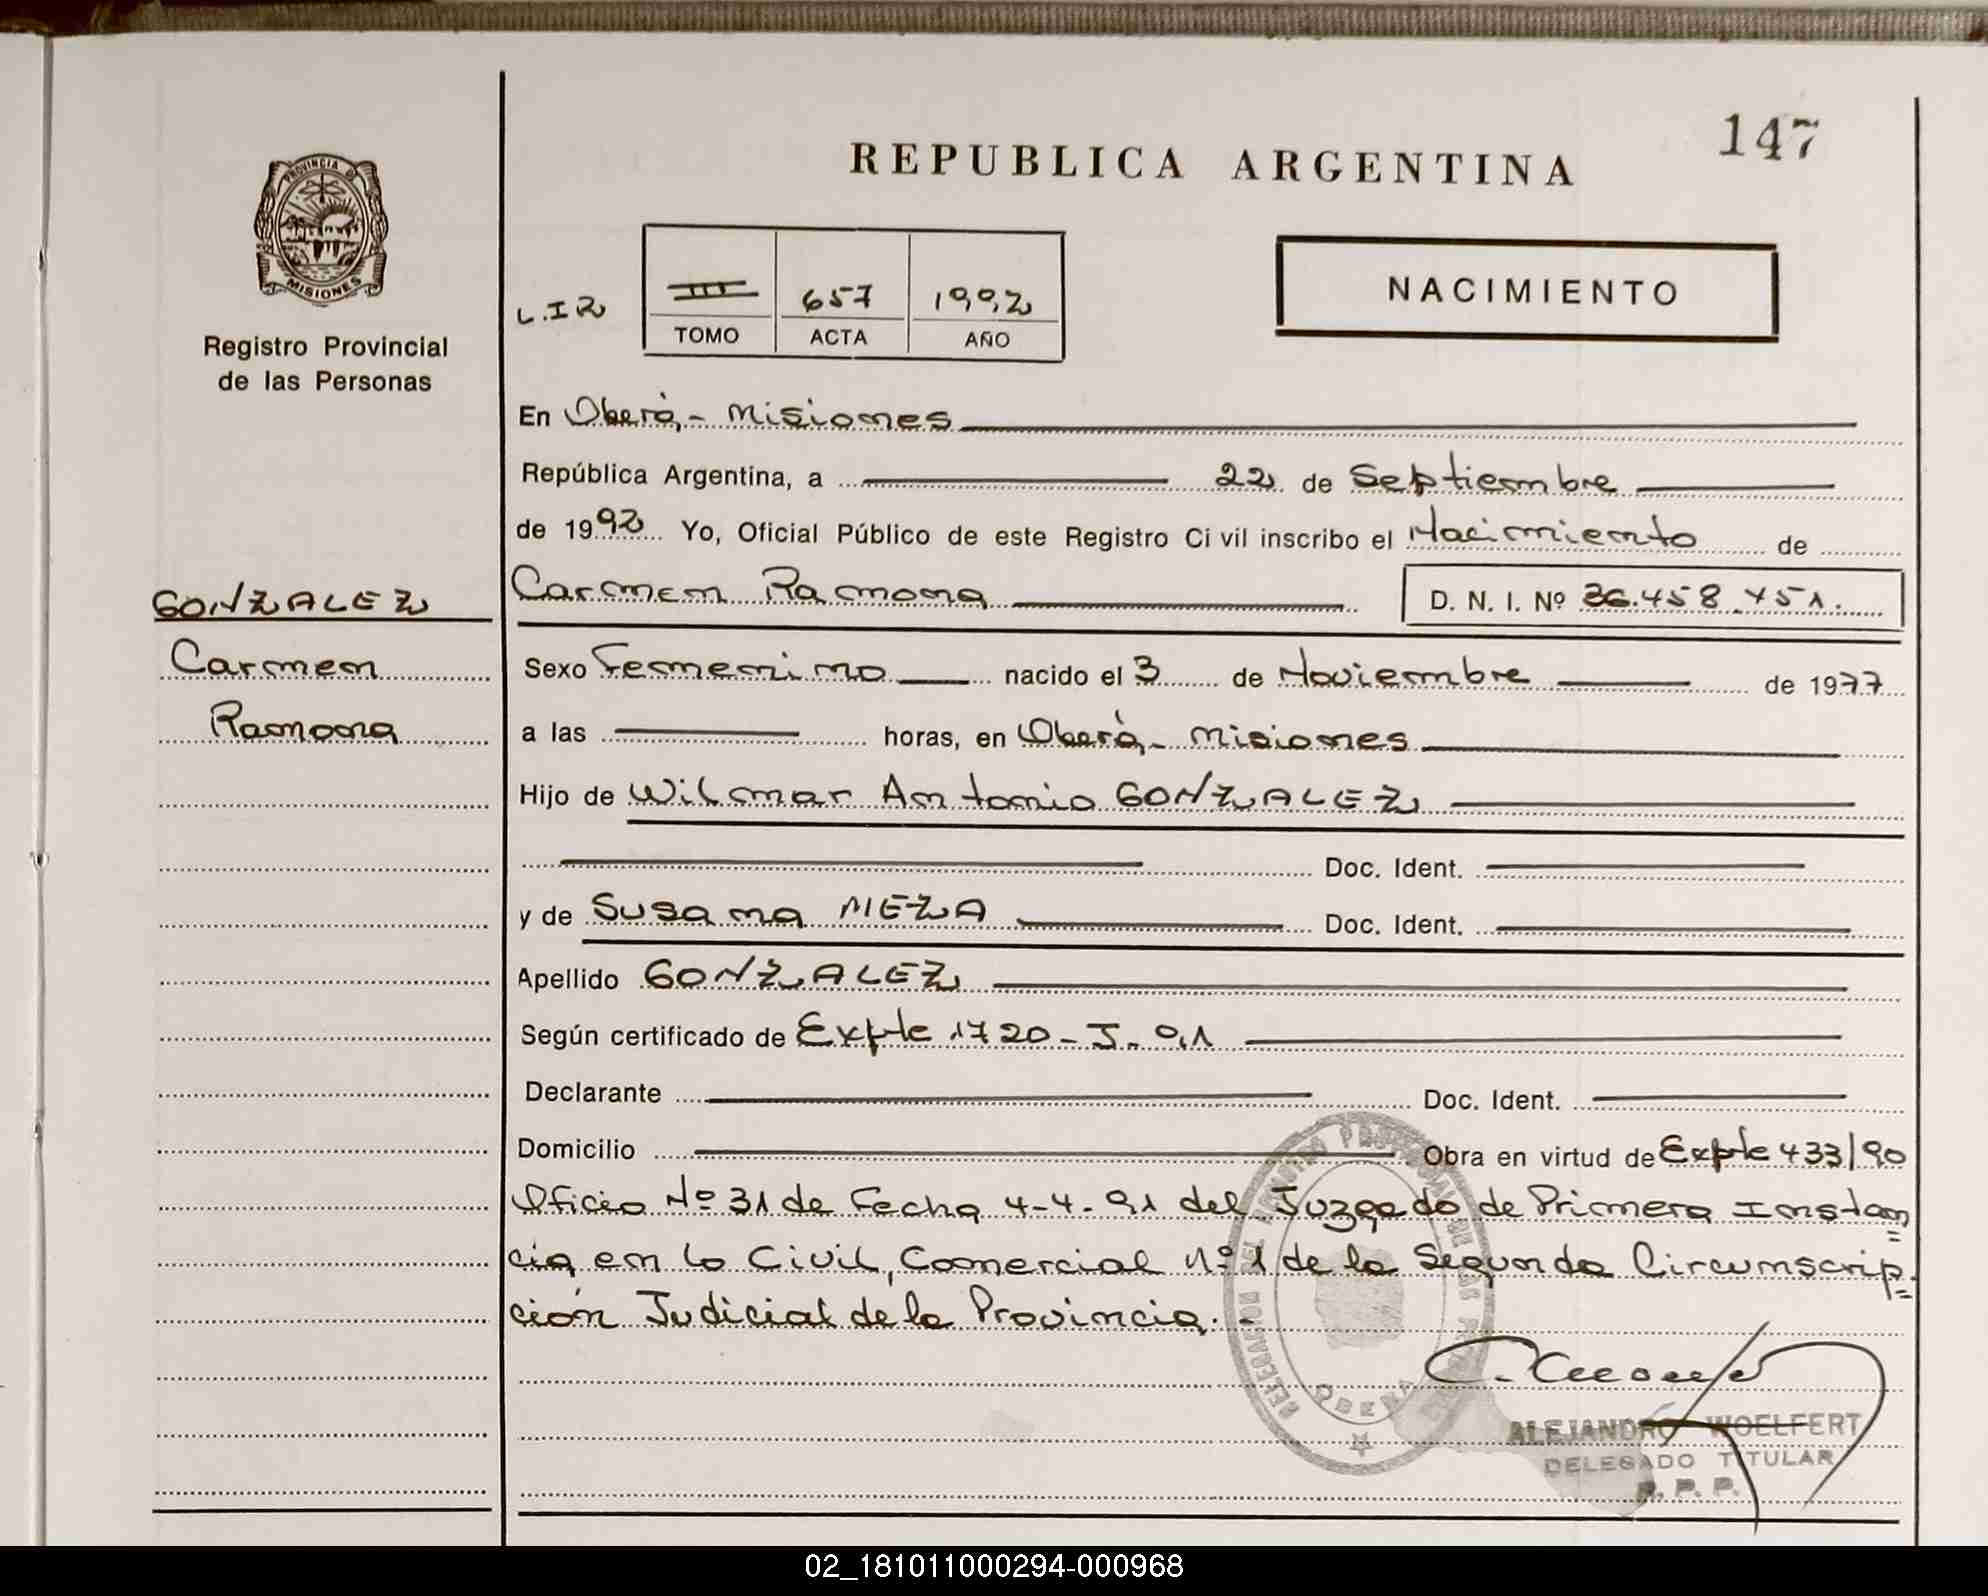 147
REPUBLICA ARGENTINA
PROVINCIA DE
MISIONES
Registro Provincial
de las Personas
L.I.R
III 657 1992
TOMO ACTA AÑO
NACIMIENTO
En Oberá,- Misiones
República Argentina, a 22 de Septiembre
de 1992 Yo, Oficial Público de este Registro Civil inscribo el Nacimiento de
Carmen Ramona D. N. I. Nº 26.458.451.
GONZALEZ
Carmen
Ramona
Sexo Femenino nacido el 3 de Noviembre de 1977
a las horas, en Oberá,- Misiones
Hijo de Wilmar Antonio GONZALEZ
Doc. Ident.
y de Susana MEZA Doc. Ident.
Apellido GONZALEZ
Según certificado de Expte 1720-J-91
Declarante Doc. Ident.
Domicilio Obra en virtud de Expte 433/90
Oficio Nº 31 de Fecha 4-4-91 del Juzgado de Primera Instan
cia en lo Civil, Comercial Nº 1 de la Segunda Circunscrip
ción Judicial de la Provincia.-
DELEGACION DEL REGISTRO PROVINCIAL DE LAS PERSONAS
OBERA
ALEJANDRO WOELFERT
DELEGADO TITULAR
R. P. P.
02_181011000294-000968